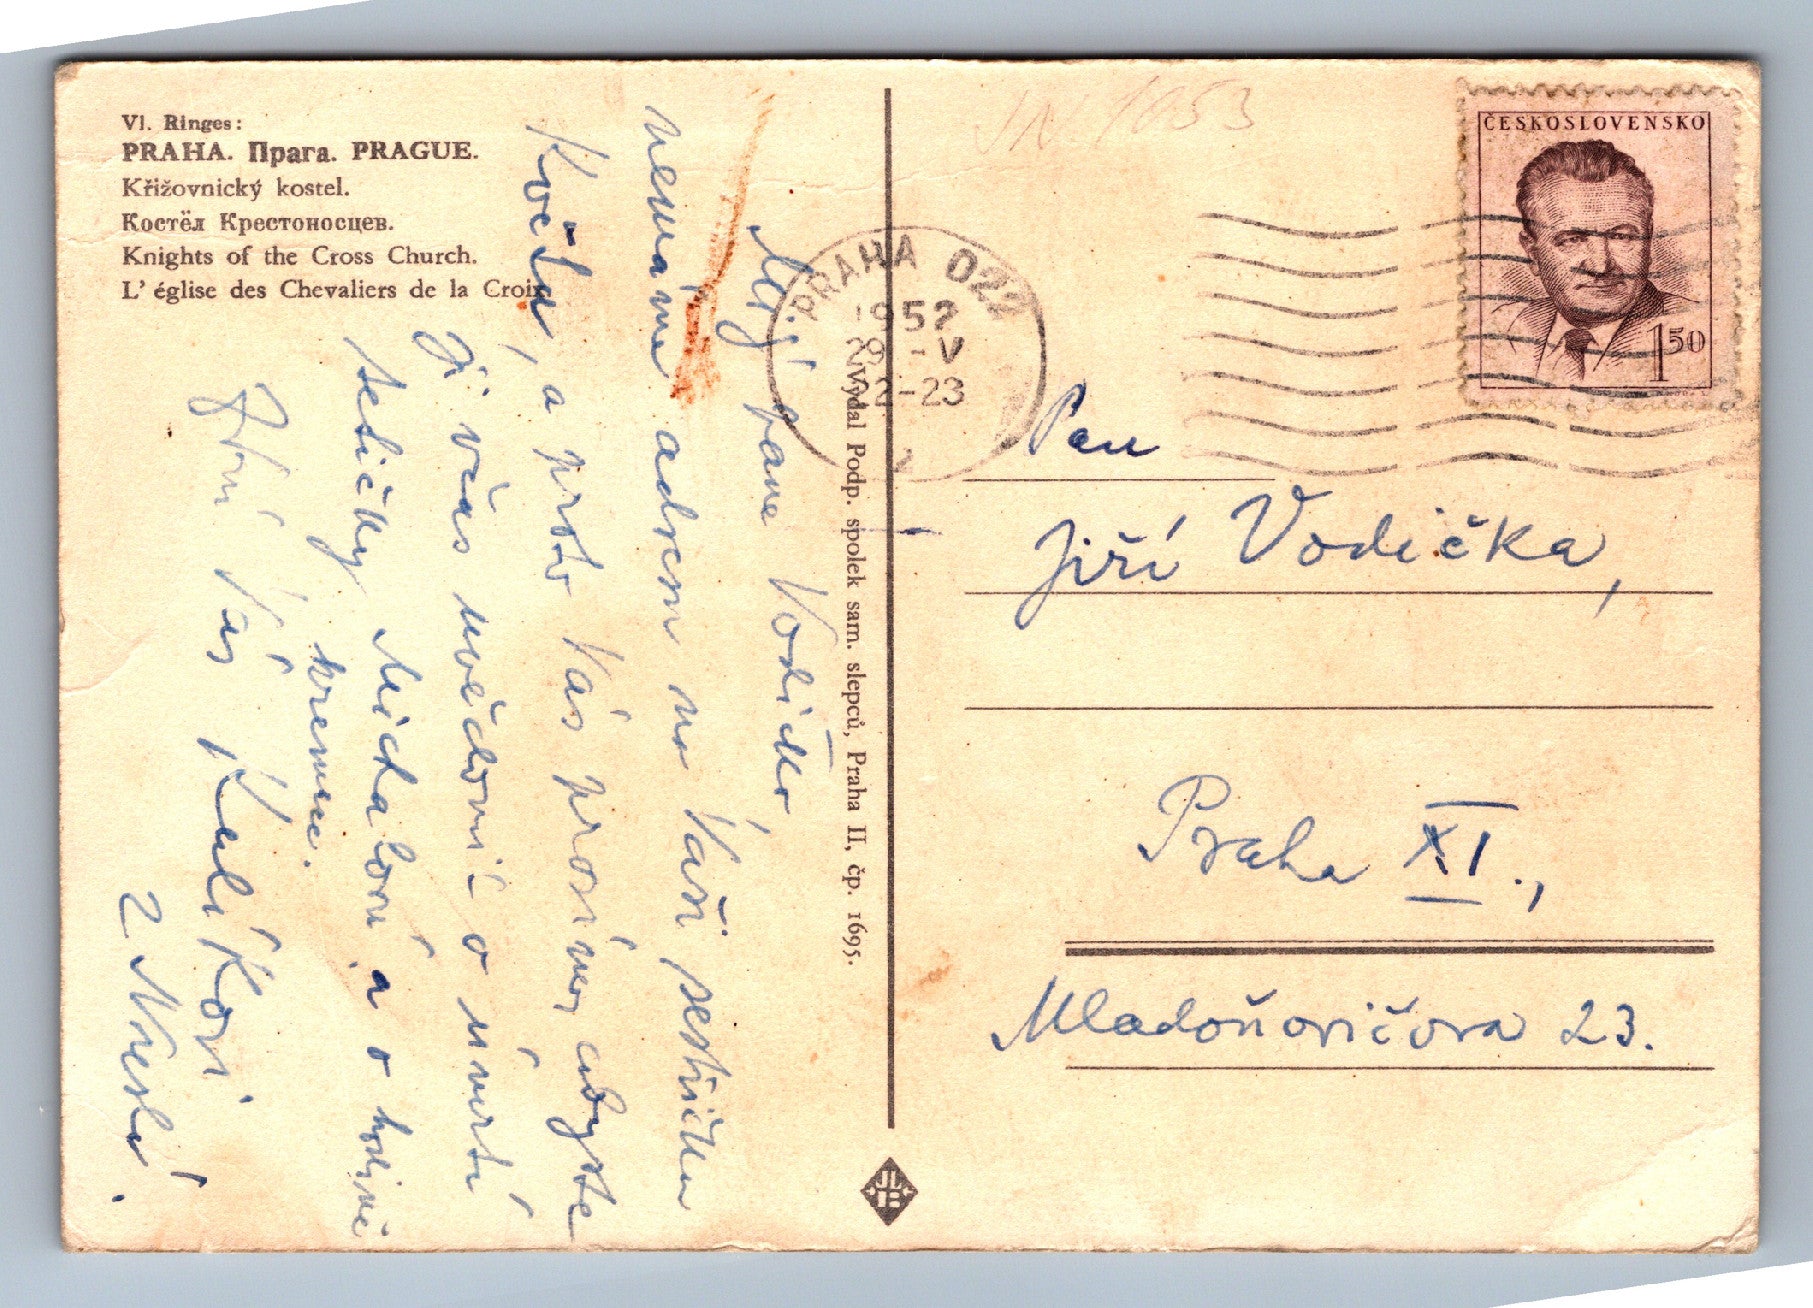 Vl. Ringes:
PRAHA. Прага. PRAGUE.
Křižovnický kostel.
Костёл Крестоносцев.
Knights of the Cross Church.
L' église des Chevaliers de la Croix.
Můj pane Vodičko,
nemáme adresu na Vaši sestřičku
Květu, a proto Vás prosíme, abyste
Ji včas uvědomil o úmrtí
tetičky Michalové a o hodině
kremace.
Zdraví Vás
z Veselí.
Vydal Podp. spolek sam. slepců, Praha II, čp. 1695.
PRAHA 022
1952
29 -V
22-23
ČESKOSLOVENSKO
1 50
Pan
Jiří Vodička,
Praha XI.,
Mladoňovičova 23.